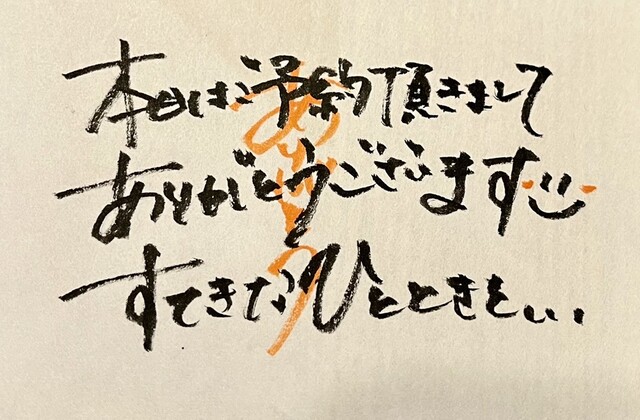 本日はご予約頂きまして
ありがとうございます
すてきなひとときを...
ありがとう